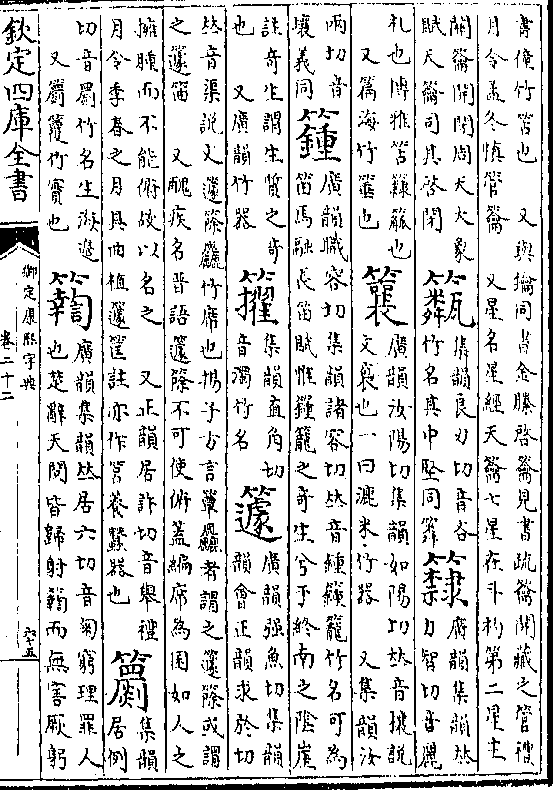 書僮竹笘也　又與鑰同書金縢啓籥見書疏籥開藏之管禮
月令孟冬慎管籥　又星名星經天籥七星在斗杓第二星主
關籥開閉周天大象
賦天籥司其啓閉
㼱集韻良刃切音吝
竹名其中堅同䉮
廣韻集韻𠀤
力智切音麗
札也博雅笘籥𥳑也
又篇海竹簹也
䉴廣韻汝陽切集韻如陽切𠀤音攘說
文裒也一曰漉米竹器　又集韻汝
兩切音
壤義同
籦廣韻職容切集韻諸容切𠀤音鍾籦籠竹名可為
笛馬融長笛賦惟籦籠之奇生兮于終南之陰崖
註奇生謂生質之奇
也　又廣韻竹器
籗集韻直角切
音濁竹名
籧廣韻强魚切集韻
韻會正韻求於切
𠀤音渠說文籧篨𥴧竹席也揚子方言簟𥴧者謂之籧篨或謂
之籧笛　又醜疾名晉語籧篨不可使俯蓋編席為囷如人之
擁腫而不能俯故以名之　又正韻居許切音舉禮
月令季春之月具曲植籧筐註亦作筥養蠶器也
𥷘集韻
居例
切音罽竹名生海邊
又罽籩竹實也
䉺廣韻集韻𠀤居六切音匊窮理罪人
也楚辭天問皆歸射䉺而無害厥躬
欽定四庫全書
御定康熙字典
卷二十二
六十五